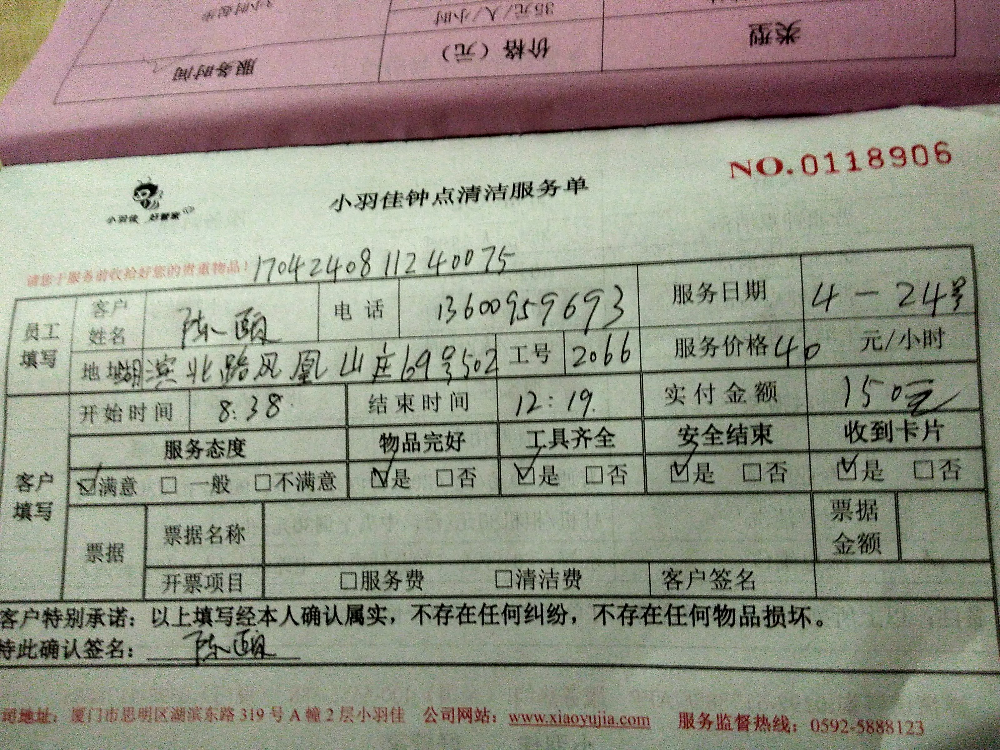 3小时起步
35元/人/小时
服务时间 价格（元） 类型
NO.0118906
小羽佳 好管家
小羽佳钟点清洁服务单
请您于服务前收拾好您的贵重物品！
1704240811240075
员工填写 客户姓名 陈颐 电话 13600959693 服务日期 4-24号
地址 湖滨北路凤凰山庄69号502 工号 2066 服务价格 40 元/小时
客户填写 开始时间 8:38 结束时间 12:19 实付金额 150元
服务态度 物品完好 工具齐全 安全结束 收到卡片
☑满意 □一般 □不满意 ☑是 □否 ☑是 □否 ☑是 □否 ☑是 □否
票据 票据名称 票据金额
开票项目 □服务费 □清洁费 客户签名
客户特别承诺：以上填写经本人确认属实，不存在任何纠纷，不存在任何物品损坏。
特此确认签名：陈颐
司地址：厦门市思明区湖滨东路319号A幢2层小羽佳 公司网站：www.xiaoyujia.com 服务监督热线：0592-5888123